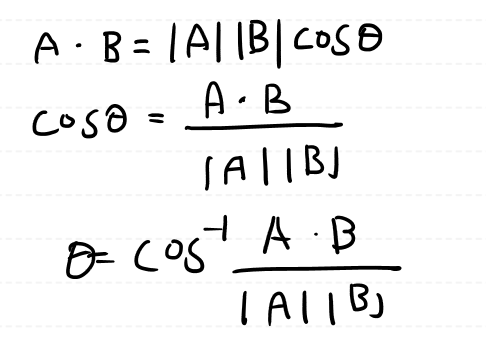 A · B = |A| |B| cosθ
cosθ = A · B / |A| |B|
θ = cos⁻¹ A · B / |A| |B|